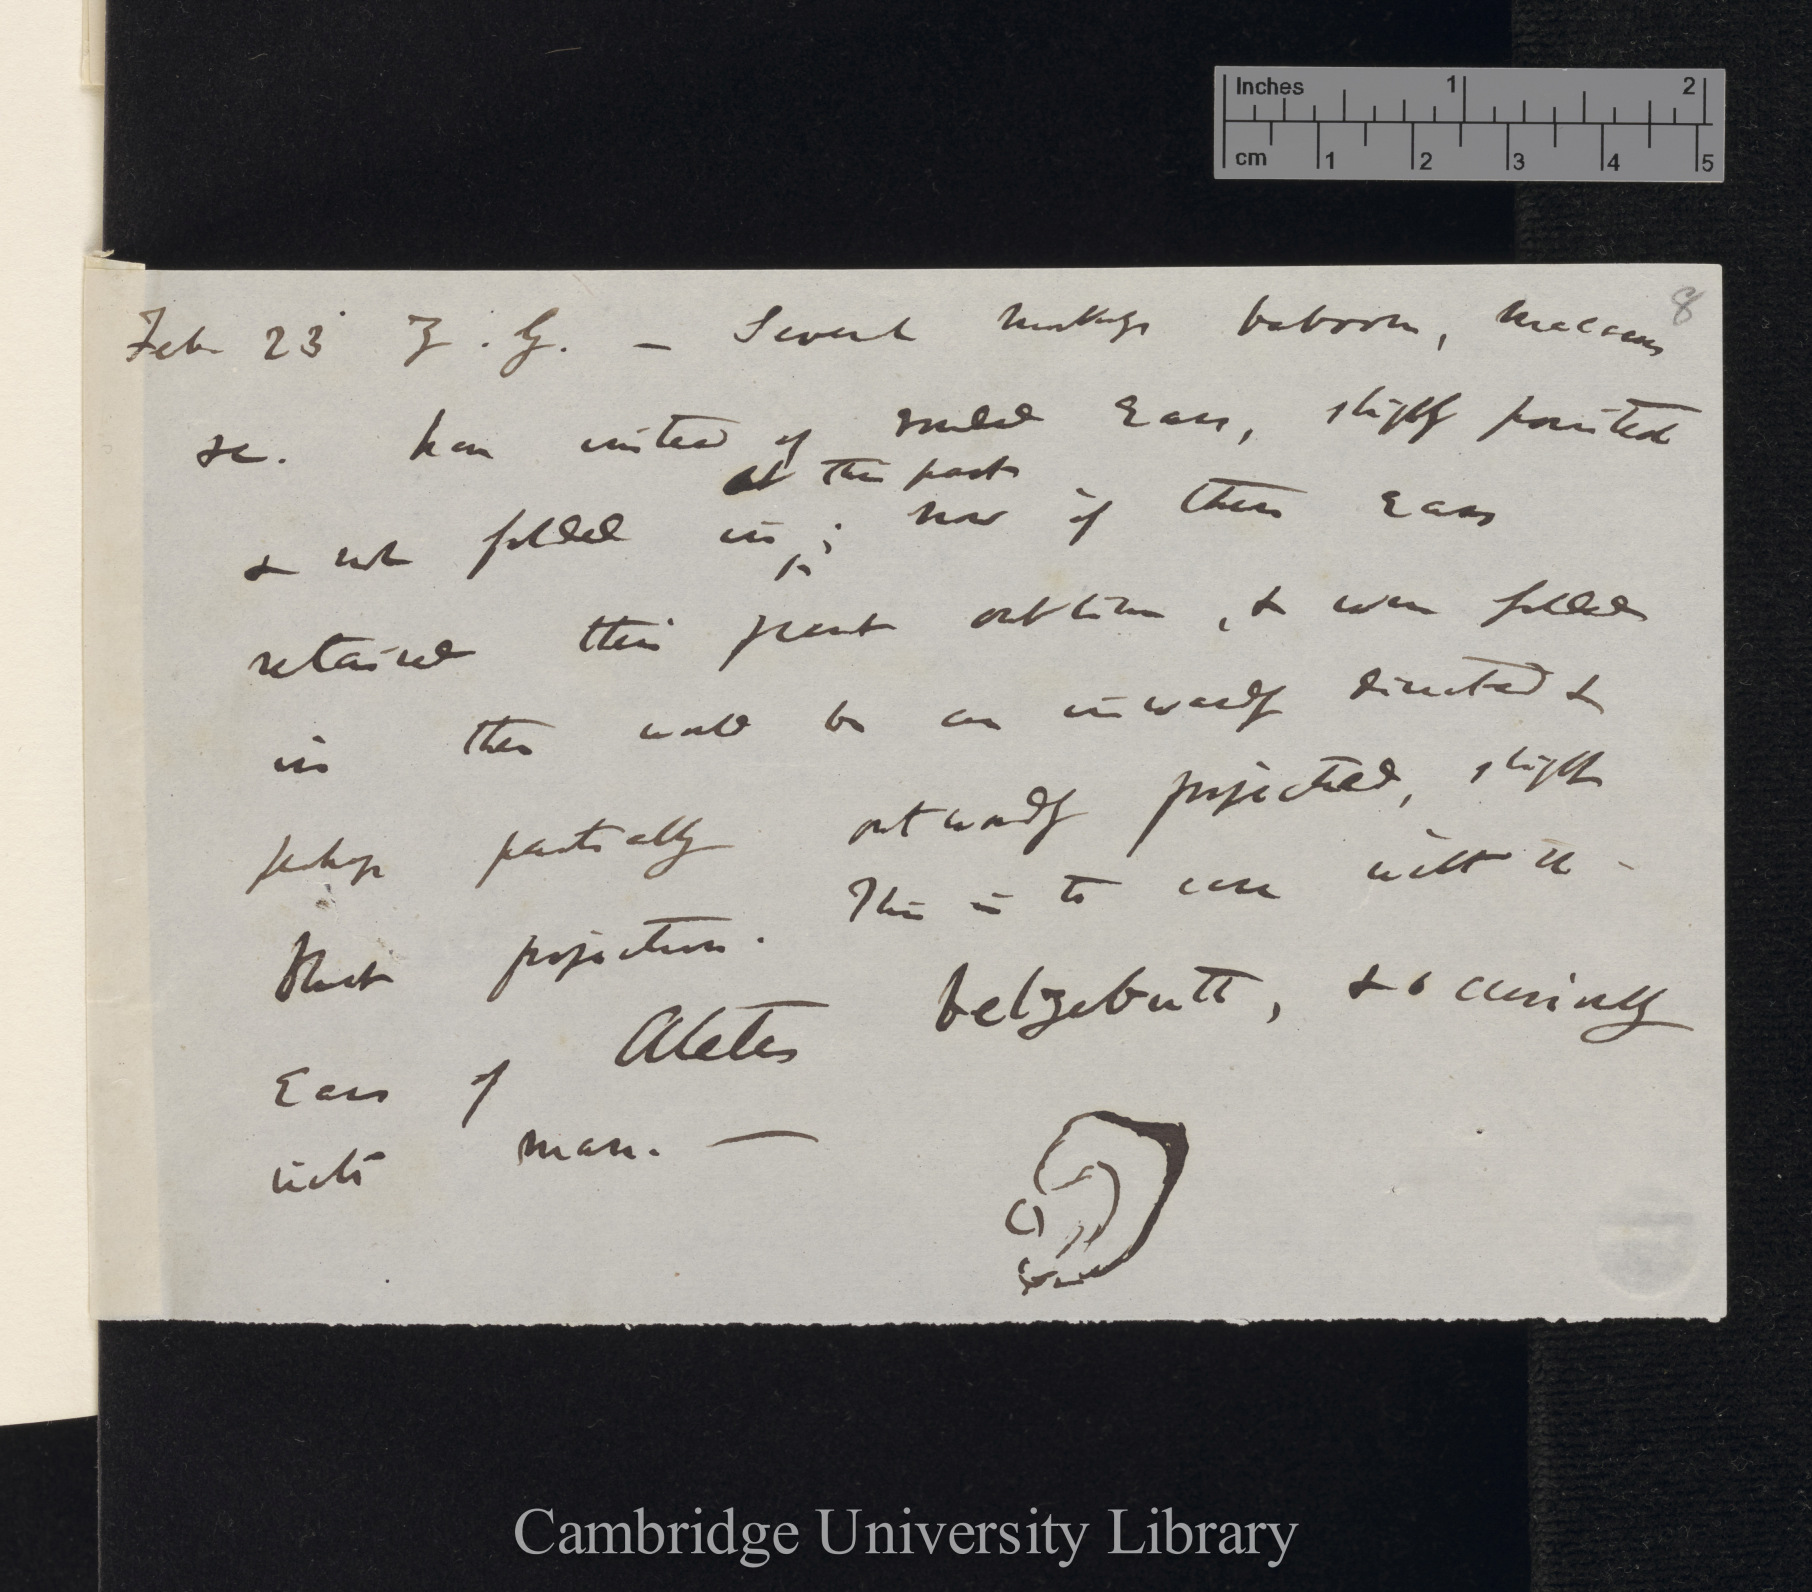 Inches 1 2
cm 1 2 3 4 5
8
Feb 23 Z. G. — Several monkeys baboon, Macacus
&c. have instead of rounded Ears, slightly pointed
at this part
& not folded in; now if these Ears
retained their present outline, & were folded
in there would be an inwardly directed &
perhaps partially outwardly projected, slight
blunt projection. This is to case with the
Ears of Ateles belzebuth, & occasionally
with man. —
Cambridge University Library